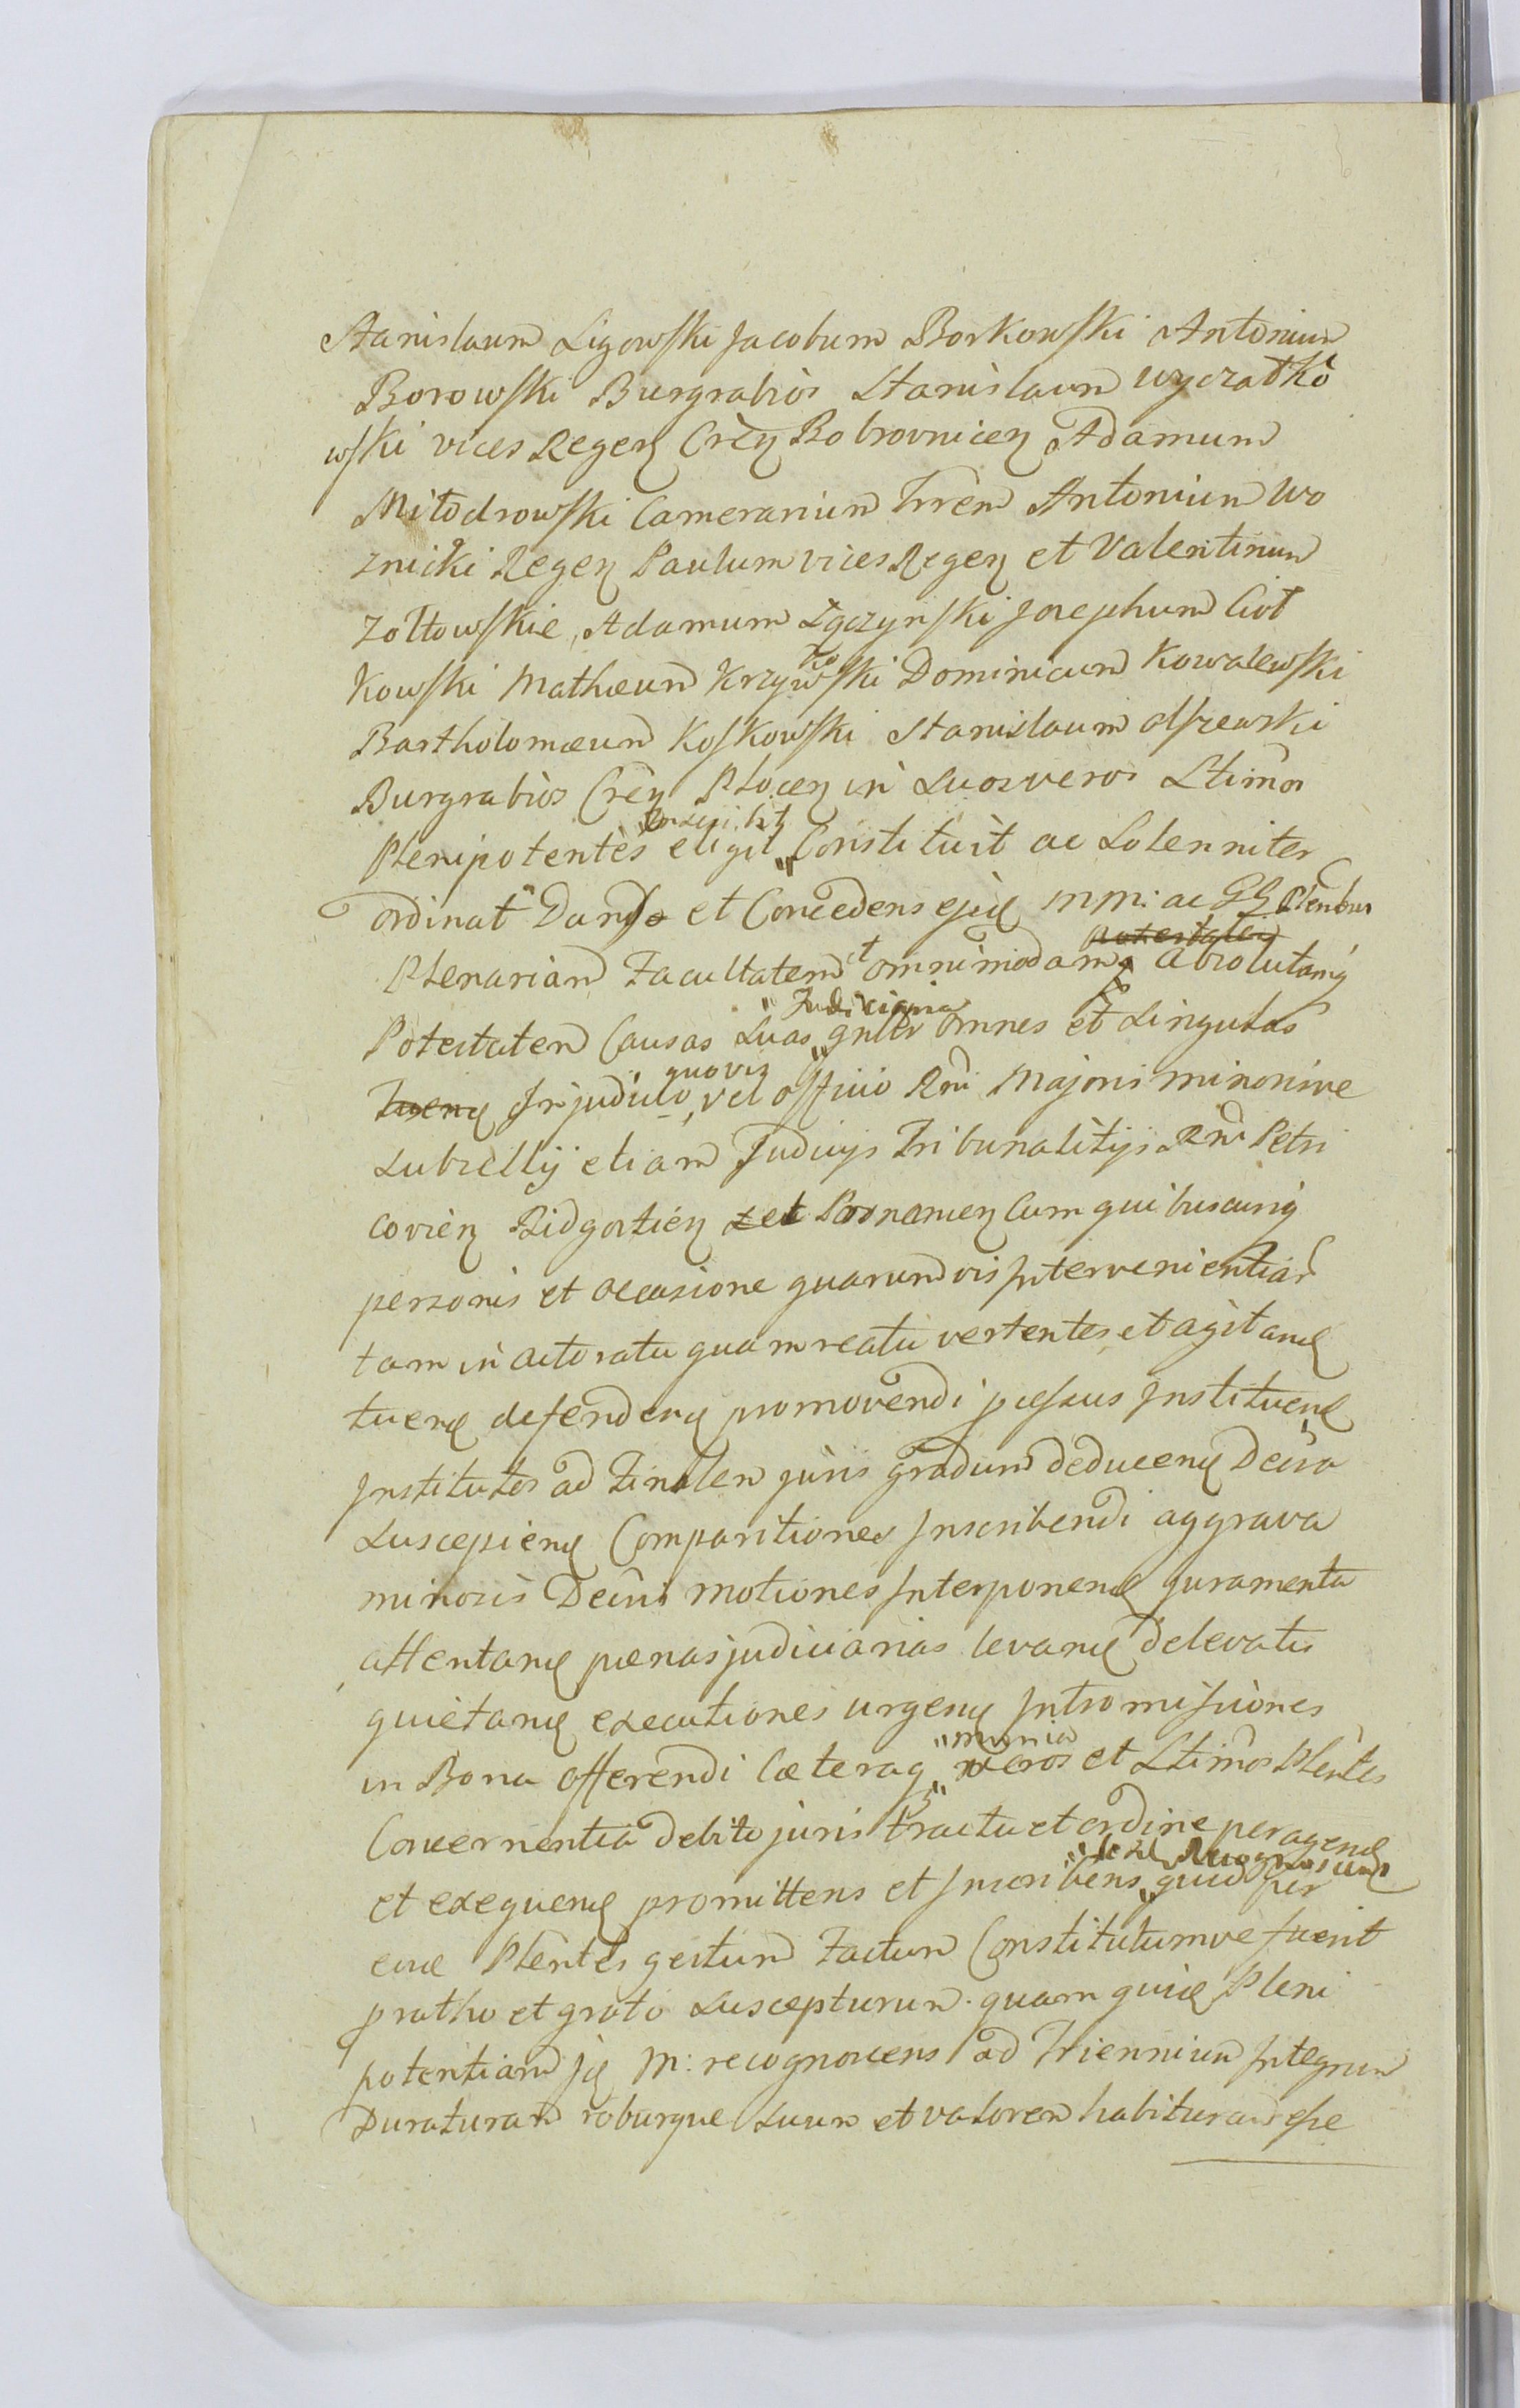 Stanislaum Ligowski Jacobum Borkowski Antonium
Borowski Burgrabios Stanislaum Wyczałko
wski vices Regen Cren Bobrovnicen Adamum
Miłodrowski Camerarium Trrem Antonium Wo
znicki Regen Paulum vices Regen et Valentinum
Zołtowskie, Adamum Łączynski Josephum Ciot
kowski Mathæum Krzywkowski Dominicum Kowalewski
Bartholomæum Koskowski Stanislaum Olszewski
Burgrabios Cren Plocen in Suos veros Ltimos
Plenipotentes eligit Constituit ac Solenniter
ordinat Dans et Concedens ejsd mm: ac GG Plentbus
Plenariam Facultatem et omnimodam absolutamq
potestatem
Judiciarias
Potestatem Causas Suas gnltr omnes et Singulas
quovis
Tuend In judicio, vel officio Rni Majoris minorisve
Subsellij etiam Judicijs Tribunalitijs Rni Petri
covien Bidgostien vel Posnanien Cum quibuscunq
personis et occasione quarumvis Intervenientiar
tam in actoratu quam reatu vertentes et agitand
tuend defendend promovendi processus Instituend
Institutos ad Finalem juris gradum deducend Decreta
Suscipiend Comparitiones Inscribendi aggrava
minosis Decris motiones Interponend juramenta
attentand pœnas judiciarias levand de levatis
quietand executiones urgend Intromissiones
in Bona offerendi Cæteraq munia veros et Ltimos Plentes
Concernentia debito juris tractu et ordine peragend
et exequend promittens et Inscribens sese Recognoscens quid per
eosd Plentes gestum Factum Constitutumve fuerit
pro ratho et grato Suscepturum. quam quid Pleni
potentiam js M: recognoscens ad Triennium Integrum
Duraturam roburque Suum et valorem habituram esse